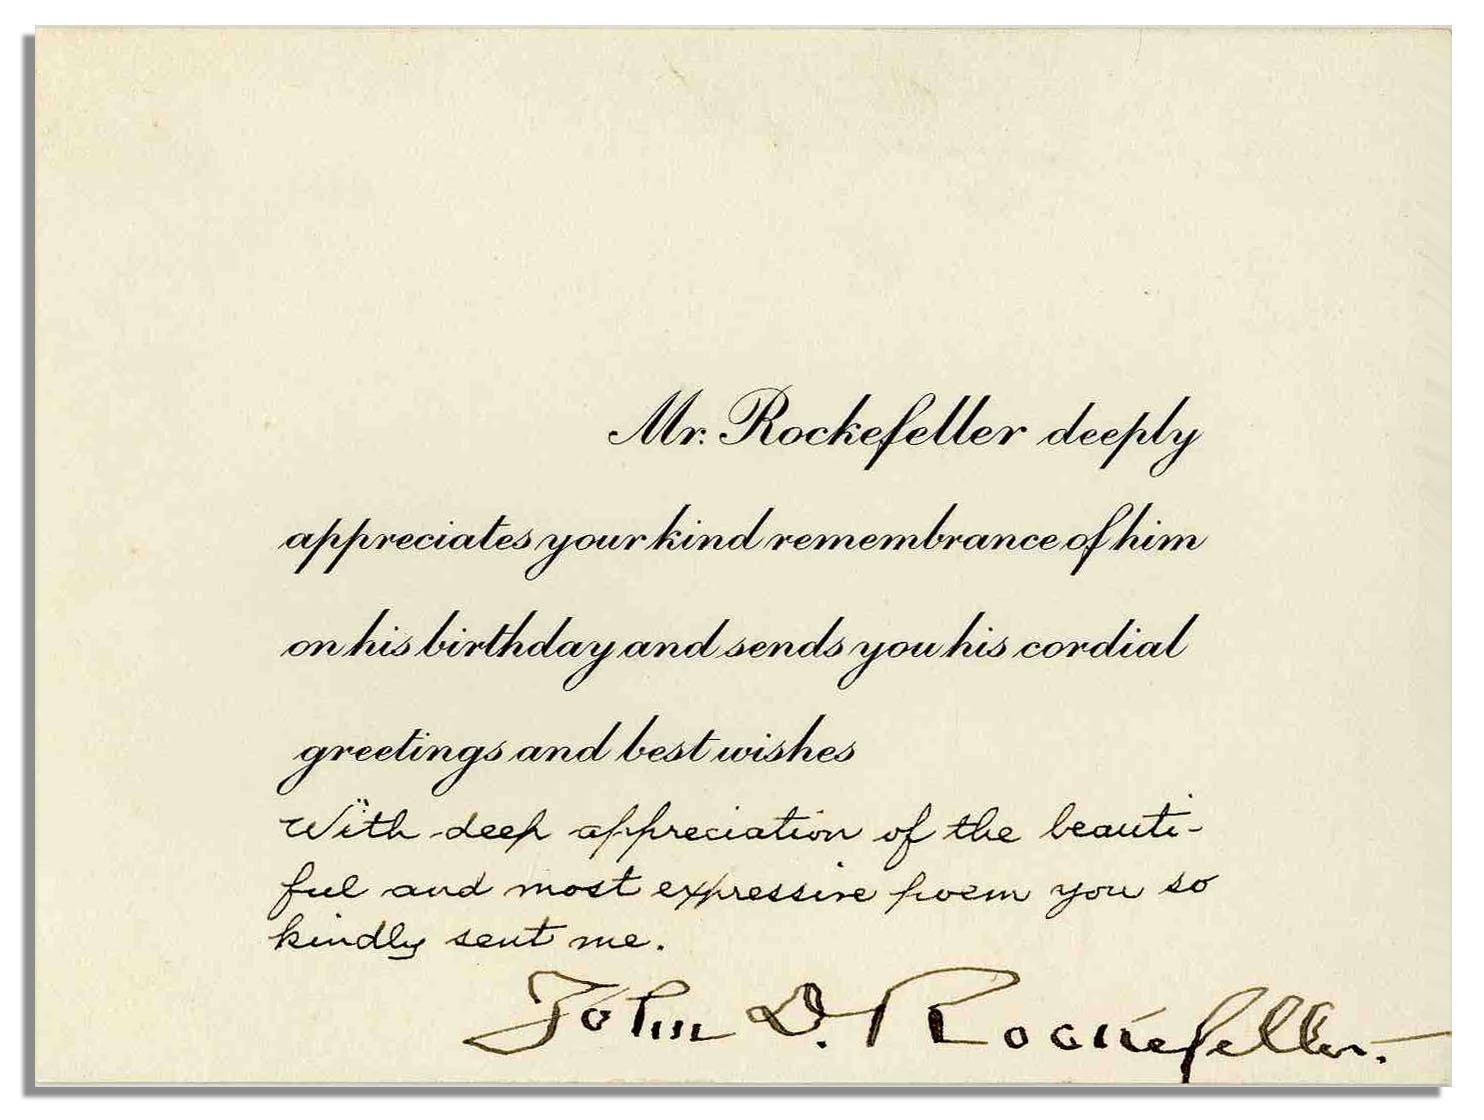 Mr. Rockefeller deeply
appreciates your kind remembrance of him
on his birthday and sends you his cordial
greetings and best wishes
With deep appreciation of the beauti-
ful and most expressive poem you so
kindly sent me.
John D. Rockefeller.